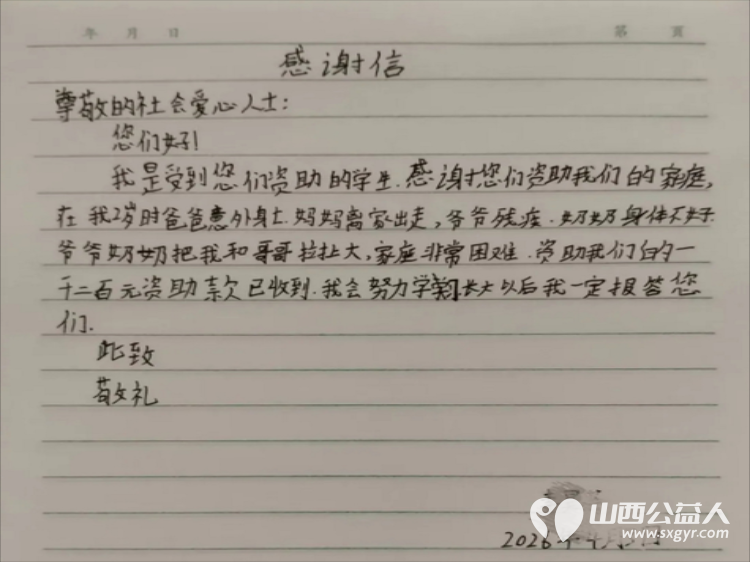 年 月 日 第 页
感谢信
尊敬的社会爱心人士:
您们好!
我是受到您们资助的学生.感谢您们资助我们的家庭,
在我2岁时爸爸意外身亡.妈妈离家出走,爷爷残疾.奶奶身体不好
爷爷奶奶把我和哥哥拉扯大,家庭非常困难.资助我们的一
千二百元资助款已收到.我会努力学习长大以后我一定报答您
们.
此致
敬礼
山西公益人
www.sxgyr.com
2026年4月 日